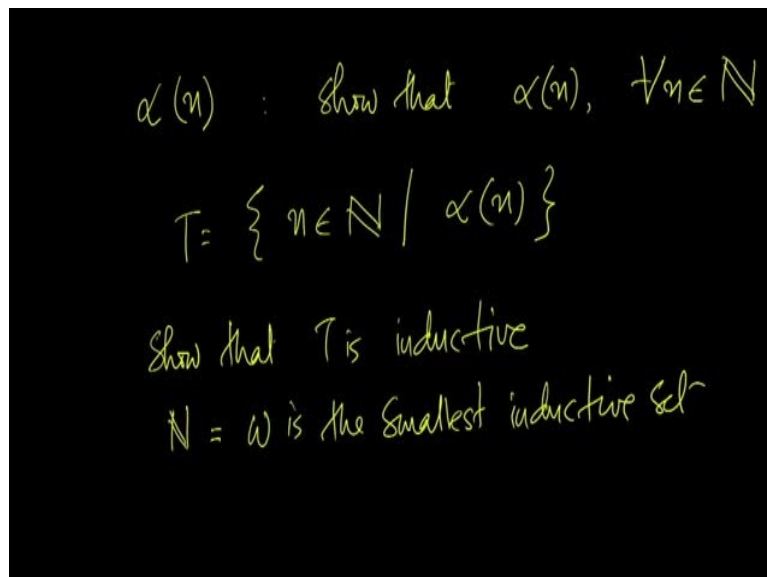 α(n) : Show that α(n), ∀n ∈ ℕ
T = { n ∈ ℕ | α(n) }
Show that T is inductive
ℕ = ω is the smallest inductive set